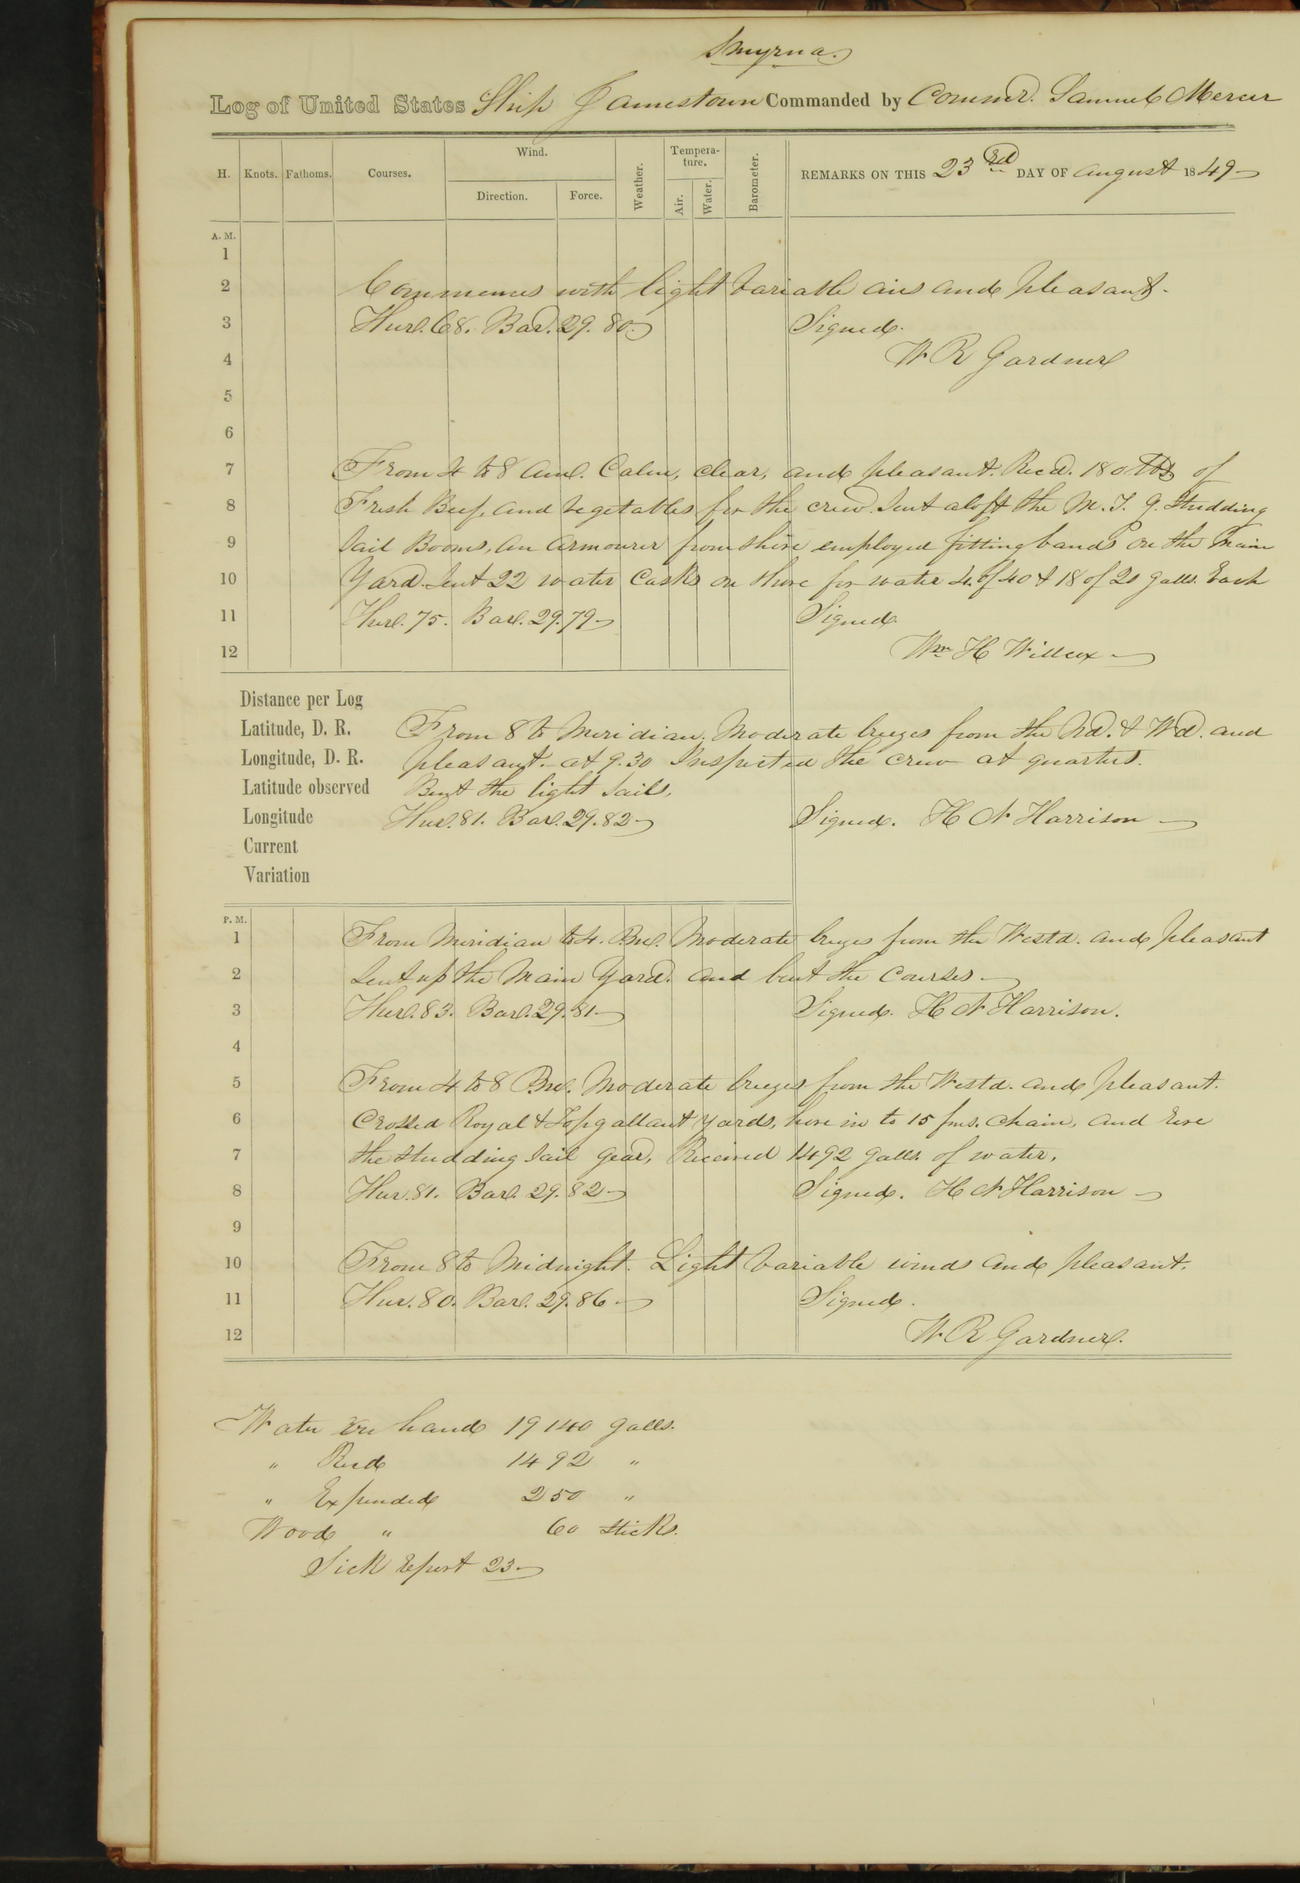 Smyrna.
Log of United States Ship Jamestown Commanded by Commdr. Samuel Mercer
H. Knots. Fathoms. Courses. Wind. Direction. Force. Weather. Tempera-ture. Air. Water. Barometer. REMARKS ON THIS 23rd DAY OF August 1849
A. M.
1
2 Commences with light variable airs and pleasant.
3 Ther. 68. Bar. 29.80. Signed.
4 W R Gardner
5
6
7 From 4 to 8 Am. Calm, clear, and pleasant. Recd. 180 lbs of
8 Fresh Beef, and vegetables for the crew. Sent aloft the M. T. G. Studding
9 sail Booms, an armourer from shore employed fitting bands on the main
10 Yard. Sent 22 water casks on shore for water 4 of 40 & 18 of 20 galls. Each
11 Ther. 75. Bar. 29.79 Signed
12 Wm H Willcox
Distance per Log
Latitude, D. R. From 8 to Meridian, Moderate breezes from the Nd. & Wd. and
Longitude, D. R. pleasant. at 9.30 Inspected the crew at quarters.
Latitude observed Bent the light sails.
Longitude Ther. 81. Bar. 29.82 Signed. H N Harrison
Current
Variation
P. M.
1 From Meridian to 4. Pm. Moderate breezes from the Westd. and pleasant
2 Sent up the Main Yard. and bent the courses.
3 Ther. 83. Bar. 29.81 Signed. H N Harrison.
4
5 From 4 to 8 Pm. Moderate breezes from the Westd. and pleasant.
6 Crossed Royal & Topgallant yards, hove in to 15 fms. chain, and rove
7 the studding sail gear, Received 1492 galls. of water.
8 Ther. 81. Bar. 29.82 Signed. H N Harrison
9
10 From 8 to Midnight. Light variable winds and pleasant.
11 Ther. 80. Bar. 29.86 Signed.
12 W R Gardner.
Water on hand 19140 galls.
" Recd 1492 "
" Expended 250 "
Wood " 60 sticks.
Sick report 23